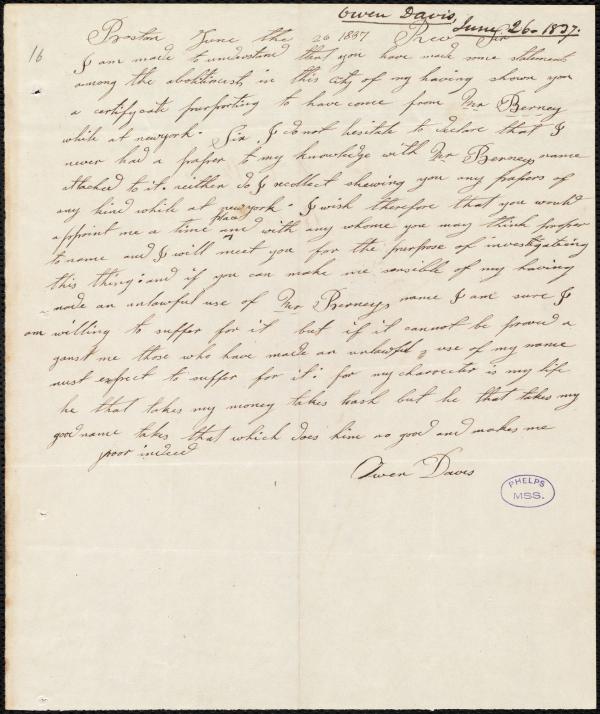 Owen Davis, June 26. 1837.
16
Boston June the 26 1837 Rev. Sir
I am made to understand that you have made some statement
among the abolitionists in this city of my having shown you
a certifycate purporting to have come from Mr Berney
while at newyork. Sir I do not hesitate to declare that I
never had a paper to my knowledge with Mr Berneys name
attached to it. neither do I recollect shewing you any papers of
any kind while at newyork. I wish therefore that you would
appoint me a time place and with any whome you may think propor
to name and I will meet you for the purpose of investigateing
this thing. and if you can make me sensible of my having
made an unlawful use of Mr Berneys name I am sure I
am willing to suffer for it but if it cannot be proved a
ganst me those who have made an unlawful use of my name
must expect to suffer for it. for my charrecter is my life
he that takes my money takes trash but he that takes my
good name takes that which does him no good and makes me
poor indeed
Owen Davis
PHELPS
MSS.